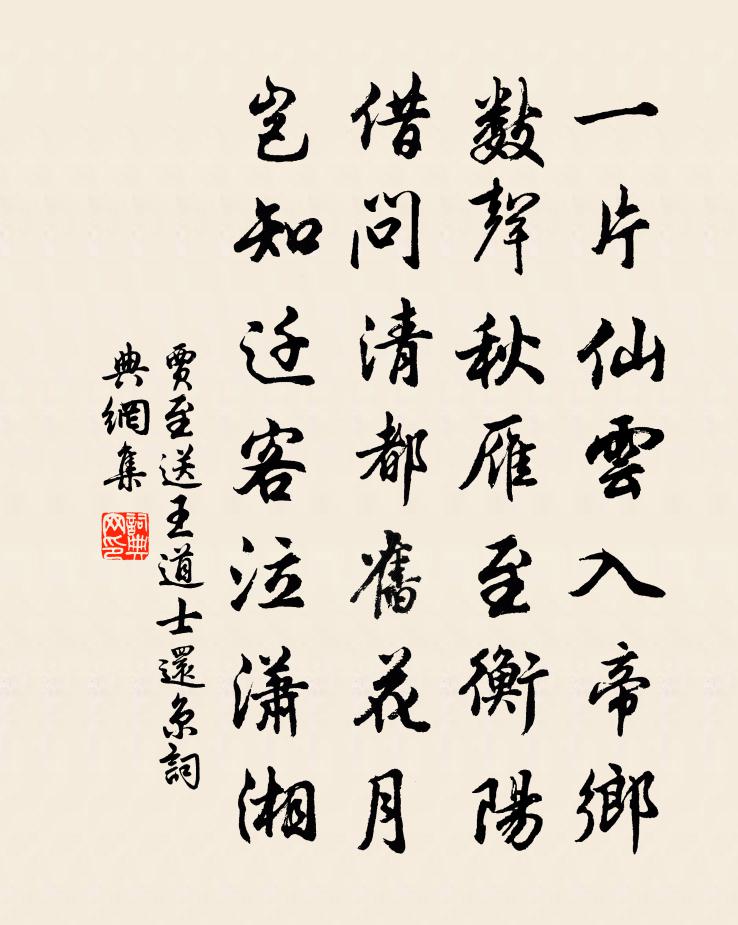 一片仙雲入帝鄉
數聲秋雁至衡陽
借問清都舊花月
豈知迁客泣瀟湘
賈至送王道士還京詞
典網集
詞典網印